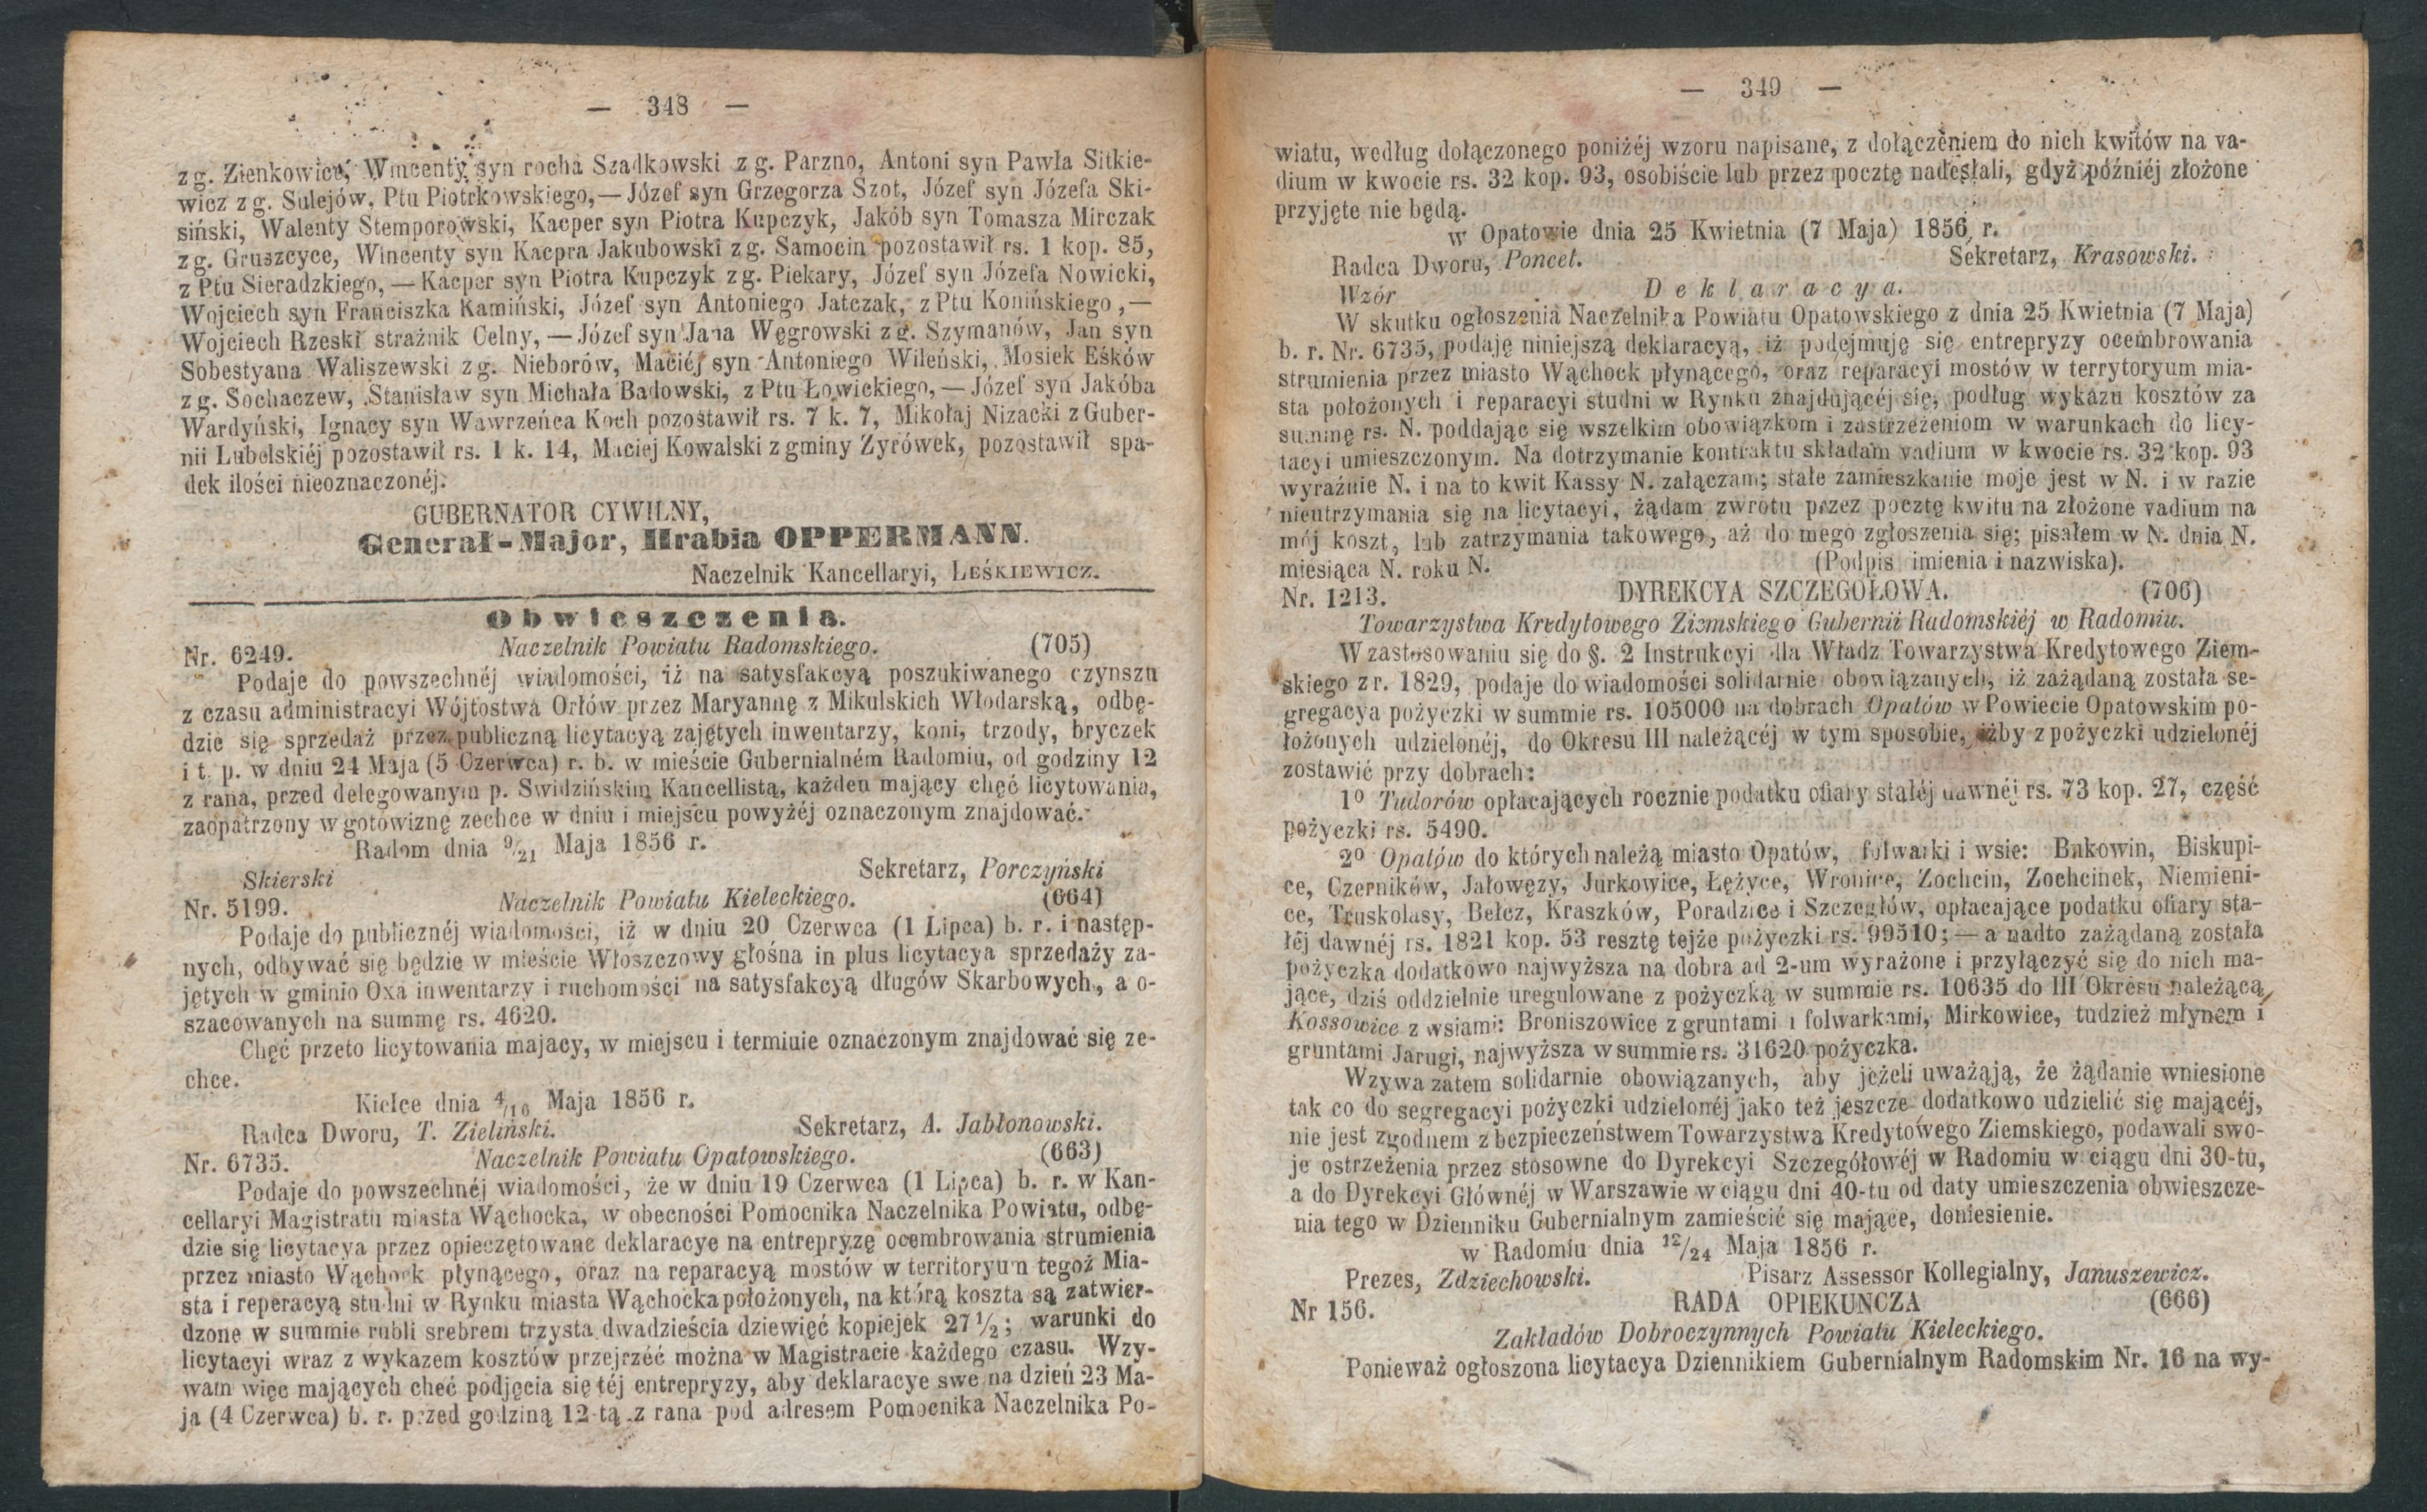 — 348 —
z g. Zienkowice, Wincenty syn rocha Szadkowski z g. Parzno, Antoni syn Pawła Sitkie-
wicz z g. Sulejów, Ptu Piotrkowskiego,— Józef syn Grzegorza Szot, Józef syn Józefa Ski-
siński, Walenty Stemporowski, Kacper syn Piotra Kupczyk, Jakób syn Tomasza Mirczak
z g. Gruszcyce, Wincenty syn Kacpra Jakubowski z g. Samocin pozostawił rs. 1 kop. 85,
z Ptu Sieradzkiego, — Kacper syn Piotra Kupczyk z g. Piekary, Józef syn Józefa Nowicki,
Wojciech syn Franciszka Kamiński, Józef syn Antoniego Jatczak, z Ptu Konińskiego, —
Wojciech Rzeski strażnik Celny, — Józef syn Jana Węgrowski z g. Szymanów, Jan syn
Sobestyana Waliszewski z g. Nieborów, Maciéj syn Antoniego Wileński, Mosiek Eśków
z g. Sochaczew, Stanisław syn Michała Badowski, z Ptu Łowickiego, — Józef syn Jakóba
Wardyński, Ignacy syn Wawrzeńca Koch pozostawił rs. 7 k. 7, Mikołaj Nizacki z Guber-
nii Lubelskiéj pozostawił rs. 1 k. 14, Maciej Kowalski z gminy Zyrówek, pozostawił spa-
dek ilości nieoznaczonéj.
GUBERNATOR CYWILNY,
Generał-Major, Hrabia OPPERMANN.
Naczelnik Kancellaryi, LEŚKIEWICZ.
Obwieszczenia.
Nr. 6249. Naczelnik Powiatu Radomskiego. (705)
Podaje do powszechnéj wiadomości, iż na satysfakcyą poszukiwanego czynszu
z czasu administracyi Wójtostwa Orłów przez Maryannę z Mikulskich Włodarską, odbę-
dzie się sprzedaż przez publiczną licytacyą zajętych inwentarzy, koni, trzody, bryczek
i t. p. w dniu 24 Maja (5 Czerwca) r. b. w mieście Gubernialném Radomiu, od godziny 12
z rana, przed delegowanym p. Swidzińskim Kancellistą, każden mający chęć licytowania,
zaopatrzony w gotowiznę zechce w dniu i miejscu powyżéj oznaczonym znajdować.
Radom dnia 9/21 Maja 1856 r.
Skierski Sekretarz, Porczyński
Nr. 5199. Naczelnik Powiatu Kieleckiego. (664)
Podaje do publicznéj wiadomości, iż w dniu 20 Czerwca (1 Lipca) b. r. i następ-
nych, odbywać się będzie w mieście Włoszczowy głośna in plus licytacya sprzedaży za-
jętych w gminio Oxa inwentarzy i ruchomości na satysfakcyą długów Skarbowych, a o-
szacowanych na summę rs. 4620.
Chęć przeto licytowania majacy, w miejscu i termiuie oznaczonym znajdować się ze-
chce.
Kielce dnia 4/16 Maja 1856 r.
Radca Dworu, T. Zieliński. Sekretarz, A. Jabłonowski.
Nr. 6735. Naczelnik Powiatu Opatowskiego. (663)
Podaje do powszechnéj wiadomości, że w dniu 19 Czerwca (1 Lipca) b. r. w Kan-
cellaryi Magistratu miasta Wąchocka, w obecności Pomocnika Naczelnika Powiatu, odbę-
dzie się licytacya przez opieczętowane deklaracye na entrepryzę ocembrowania strumienia
przez miasto Wąchock płynącego, oraz na reparacyą mostów w territoryum tegoż Mia-
sta i reperacyą studni w Rynku miasta Wąchocka położonych, na którą koszta są zatwier-
dzone w summie rubli srebrem trzysta dwadzieścia dziewięć kopiejek 27½; warunki do
licytacyi wraz z wykazem kosztów przejrzéć można w Magistracie każdego czasu. Wzy-
wam więc mających cheć podjęcia się téj entrepryzy, aby deklaracye swe na dzień 23 Ma-
ja (4 Czerwca) b. r. przed godziną 12-tą z rana pod adresem Pomocnika Naczelnika Po-
— 349 —
wiatu, według dołączonego poniżéj wzoru napisane, z dołączeniem do nich kwitów na va-
dium w kwocie rs. 32 kop. 93, osobiście lub przez pocztę nadesłali, gdyż późniéj złożone
przyjęte nie będą.
w Opatowie dnia 25 Kwietnia (7 Maja) 1856 r.
Radca Dworu, Poncet. Sekretarz, Krasowski.
Wzór Deklaracya.
W skutku ogłoszenia Naczelnika Powiatu Opatowskiego z dnia 25 Kwietnia (7 Maja)
b. r. Nr. 6735, podaję niniejszą deklaracyą, iż podejmuję się entrepryzy ocembrowania
strumienia przez miasto Wąchock płynącego, oraz reparacyi mostów w terrytoryum mia-
sta położonych i reparacyi studni w Rynku znajdującéj się, podług wykazu kosztów za
summę rs. N. poddając się wszelkim obowiązkom i zastrzeżeniom w warunkach do licy-
tacyi umieszczonym. Na dotrzymanie kontraktu składam vadium w kwocie rs. 32 kop. 93
wyraźnie N. i na to kwit Kassy N. załączam; stałe zamieszkanie moje jest w N. i w razie
nieutrzymania się na licytacyi, żądam zwrotu przez pocztę kwitu na złożone vadium na
mój koszt, lub zatrzymania takowego, aż do mego zgłoszenia się; pisałem w N. dnia N.
miesiąca N. roku N. (Podpis imienia i nazwiska).
Nr. 1213. DYREKCYA SZCZEGOŁOWA. (706)
Towarzystwa Kredytowego Ziemskiego Gubernii Radomskiéj w Radomiu.
W zastosowaniu się do §. 2 Instrukcyi dla Władz Towarzystwa Kredytowego Ziem-
skiego z r. 1829, podaje do wiadomości solidarnie obowiązanych, iż zażądaną została se-
gregacya pożyczki w summie rs. 105000 na dobrach Opatów w Powiecie Opatowskim po-
łożonych udzielonéj, do Okresu III należącéj w tym sposobie, iżby z pożyczki udzielonéj
zostawić przy dobrach:
1º Tudorów opłacających rocznie podatku ofiary stałéj dawnéj rs. 73 kop. 27, część
pożyczki rs. 5490.
2º Opatów do których należą miasto Opatów, folwarki i wsie: Bukowin, Biskupi-
ce, Czerników, Jałowęzy, Jurkowice, Łężyce, Wronice, Zochcin, Zochcinek, Niemieni-
ce, Truskolasy, Bełcz, Kraszków, Poradzice i Szczegłów, opłacające podatku ofiary sta-
łéj dawnéj rs. 1821 kop. 53 resztę tejże pożyczki rs. 99510; — a nadto zażądaną została
pożyczka dodatkowo najwyższa na dobra ad 2-um wyrażone i przyłączyć się do nich ma-
jące, dziś oddzielnie uregulowane z pożyczką w summie rs. 10635 do III Okresu należącą,
Kossowice z wsiami: Broniszowice z gruntami i folwarkami, Mirkowice, tudzież młynem i
gruntami Jarugi, najwyższa w summie rs. 31620 pożyczka.
Wzywa zatem solidarnie obowiązanych, aby jeżeli uważąją, że żądanie wniesione
tak co do segregacyi pożyczki udzielonéj jako też jeszcze dodatkowo udzielić się mającéj,
nie jest zgodnem z bezpieczeństwem Towarzystwa Kredytowego Ziemskiego, podawali swo-
je ostrzeżenia przez stosowne do Dyrekcyi Szczegółowéj w Radomiu w ciągu dni 30-tu,
a do Dyrekcyi Głównéj w Warszawie w ciągu dni 40-tu od daty umieszczenia obwieszcze-
nia tego w Dzienniku Gubernialnym zamieścić się mające, doniesienie.
w Radomiu dnia 12/24 Maja 1856 r.
Prezes, Zdziechowski. Pisarz Assessor Kollegialny, Januszewicz.
Nr 156. RADA OPIEKUNCZA (666)
Zakładów Dobroczynnych Powiatu Kieleckiego.
Ponieważ ogłoszona licytacya Dziennikiem Gubernialnym Radomskim Nr. 16 na wy-